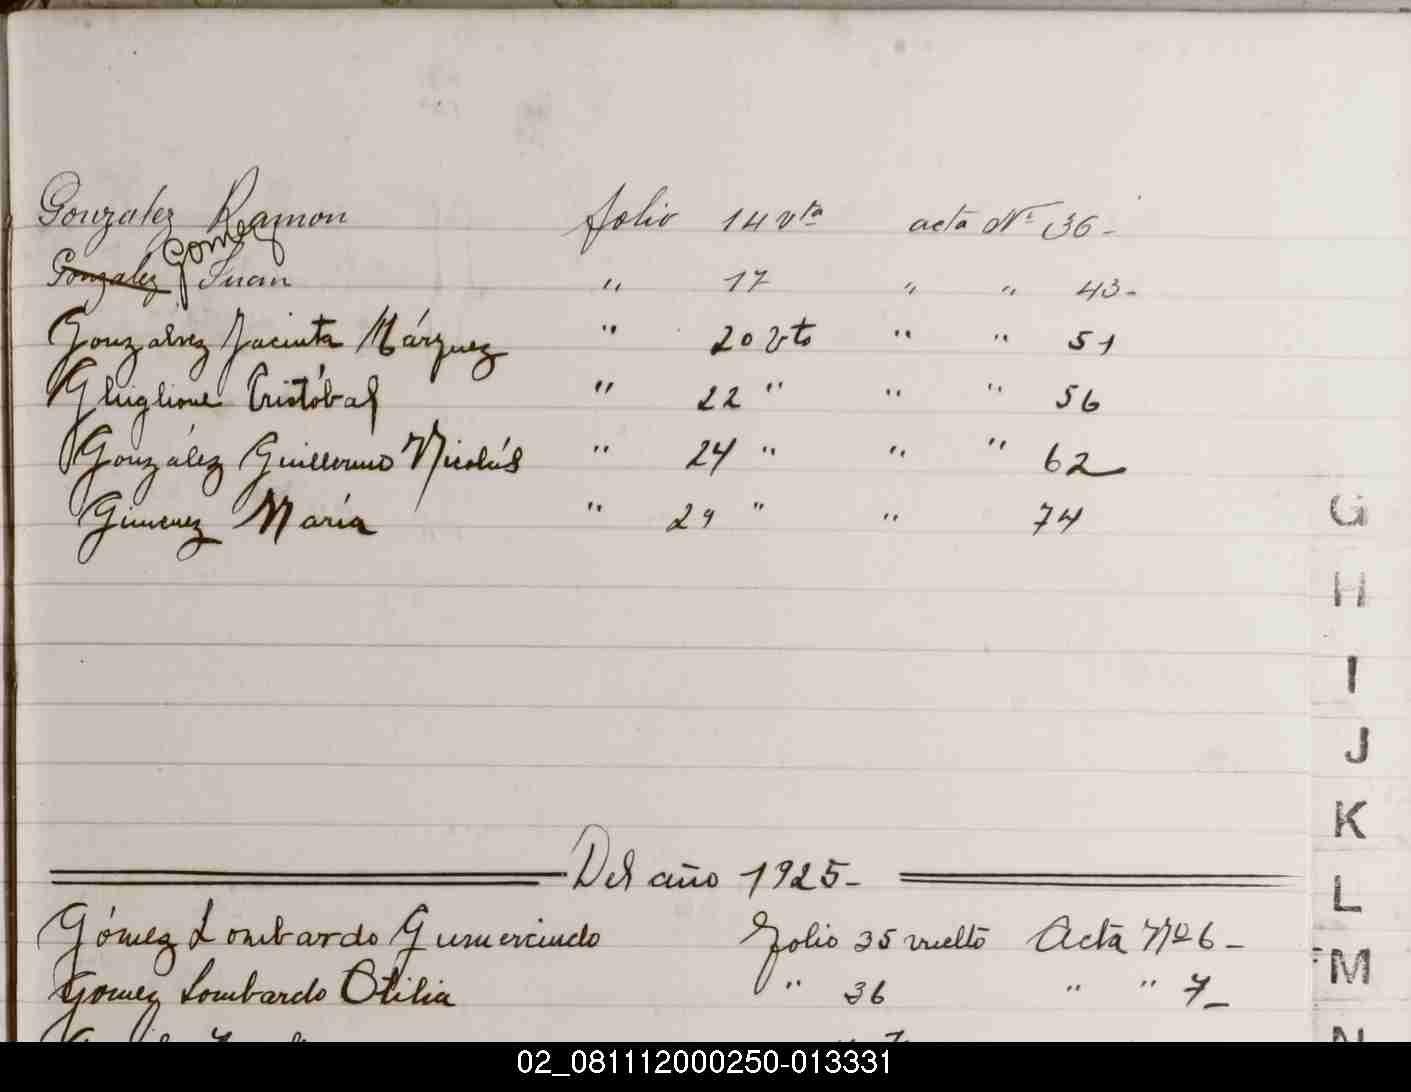 Gonzalez Ramon folio 14 vta acta Nº 36-
Gonzalez Gomez Juan " 17 " " 43-
Gonzalvez Jacinta Márquez " 20 vto " " 51
Ghiglione Cristóbal " 22 " " " 56
González Guillermo Nicolás " 24 " " " 62
Gimenez María " 29 " " 74
G
H
I
J
K
L
M
N
Del año 1925-
Gómez Lombardo Gumercindo Folio 35 vuelto Acta Nº 6-
Gomez Lombardo Otilia " 36 " " 7-
02_081112000250-013331